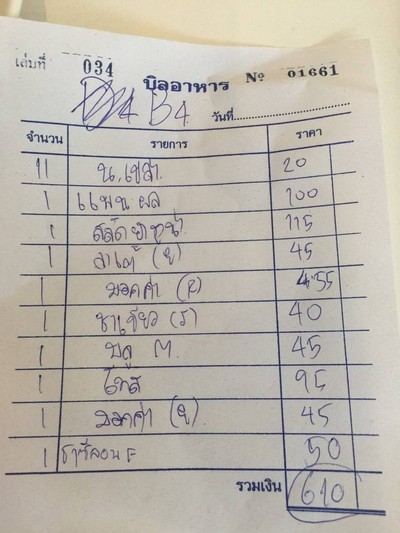 เล่มที่ 034 บิลอาหาร Nº 01661
B4 วันที่
จำนวน รายการ ราคา
11 น.เปล่า 20
1 แพน ผล 100
1 สลัด ทูน่า 115
1 ลาเต้ (ย) 45
1 มอคค่า (ร) 55
1 ชาเขียว (ร) 40
1 บลู M. 45
1 โทส 95
1 มอคค่า (ย) 45
1 ชาซีลอน F 50
รวมเงิน 610